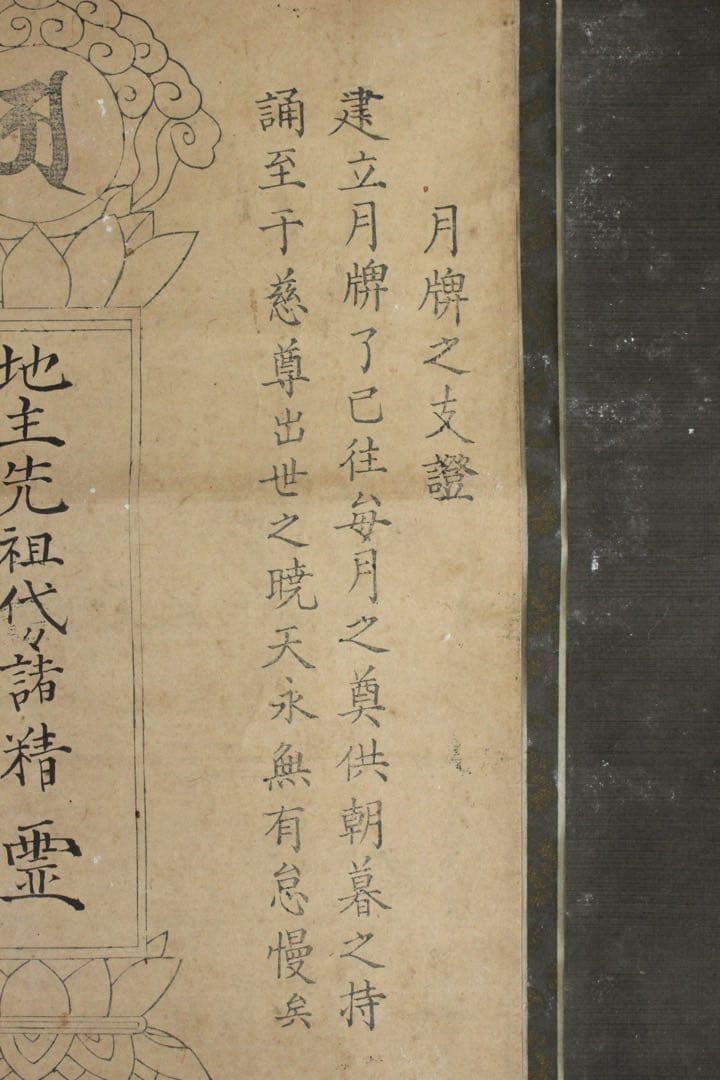 月牌之支證
建立月牌了已往每月之奠供朝暮之持
誦至于慈尊出世之暁天永無有怠慢矣
地主先祖代々諸精霊